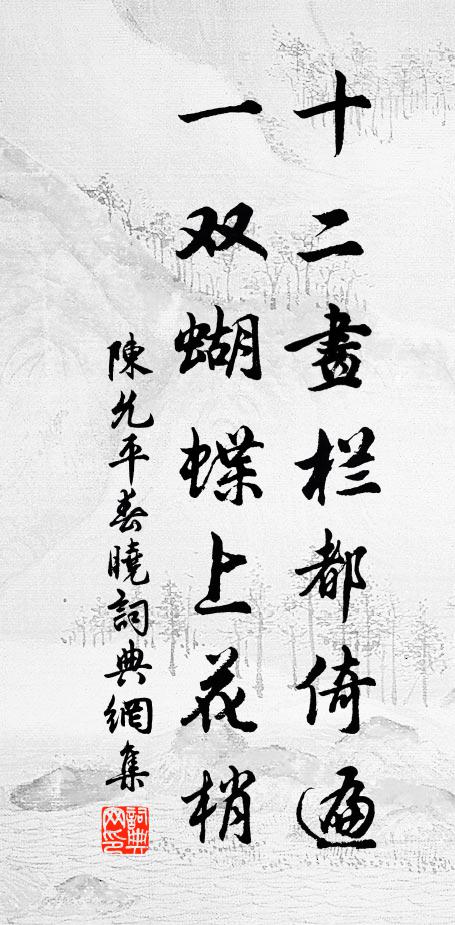 十二畫栏都倚遍
一双蝴蝶上花梢
陳允平春曉詞典網集
詞典網印